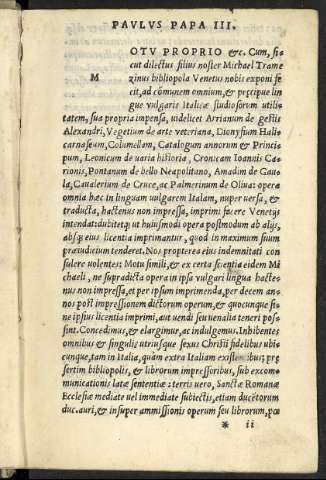 PAVLVS PAPA III.
M
OTV PROPRIO &c. Cum, si
cut dilectus filius noster Michael Trame
zinus bibliopola Venetus nobis exponi fe
cit, ad cōmunem omnium, et præcipue lin
guæ vulgaris Italicæ studiosorum utili
tatem, sua propria inpensa, uidelicet Arrianum de gestis
Alexandri, Vegetium de arte veteriana, Dionysium Hali
carnaseum, Columellam, Catalogum annorum & Princi
pum, Leonicum de uaria historia, Cronicam Ioannis Ca
rionis, Pontanum de bello Neapolitano, Amadim de Gau
la, Caualerium de Cruce, ac Palmerinum de Oliua: opera
omnia hæc in linguam vulgarem Italam, nuper versa, &
traducta, hactenus non impressa, imprimi facere Venetijs
intendat: dubitetq; ut huiusmodi opera postmodum ab alijs,
absq; eius licentia imprimantur, quod in maximum suum
præiudicium tenderet. Nos propterea eius indemnitati con
sulere volentes: Motu simili, & ex certa scientia eidem Mi
chaeli, ne supradicta opera in ipsa vulgari lingua hacte
nus non impressa, et per ipsum imprimenda, per decem an=
nos post impressionem dictorum operum, & quocunque si=
ne ipsius licentia imprimi, aut vendi seu venalia teneri pos
sint. Concedimus, & elargimur, ac indulgemus. Inhibentes
omnibus & singulis utriusque sexus Christi fidelibus ubi
cunque, tam in Italia, quàm extra Italiam existentibus; præ
sertim bibliopolis, & librorum impressoribus, sub excom=
municationis latæ sententiæ: terris uero, Sanctæ Romanæ
Ecclesiæ mediate uel immediate subiectis, etiam ducētorum
duc. auri, & insuper ammissionis operum seu librorum, pœ
* ii